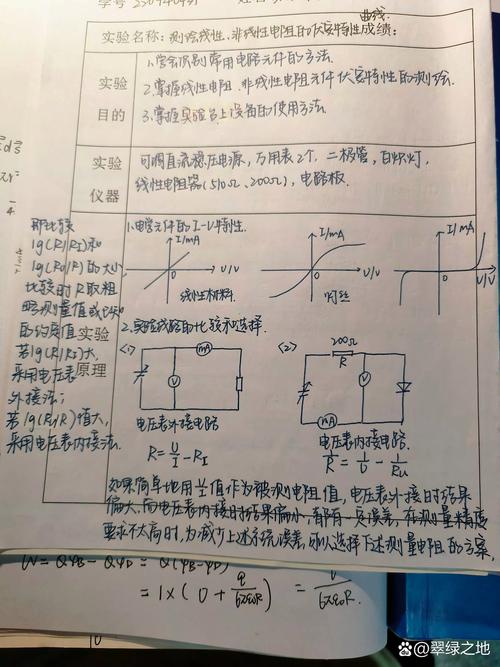 学号
实验名称: 测绘线性、非线性电阻的伏安特性曲线. 成绩:
实验目的
1.学会识别常用电路元件的方法.
2.掌握线性电阻、非线性电阻元件伏安特性的测方法.
3.掌握实验台上设备的使用方法.
实验仪器
可调直流稳压电源, 万用表2个, 二极管, 白炽灯,
线性电阻器(510Ω、200Ω), 电路板.
实验原理
1.电学元件的I-V特性.
I/mA
U/V
0
线性材料.
I/mA
U/V
0
灯丝
I/mA
U/V
0
2.实验线路的比较和选择.
<1>
mA
V
电压表外接电路
R = U/I - R_I
<2>
200Ω
R
V
mA
电压表内接电路.
1/R = I/U - 1/Ru
如果简单地用U/I值作为被测电阻值, 电压表外接时结果
偏大, 而电压表内接时结果偏小, 都有一定误差, 在测量精度
要求不太高时, 为减少上述系统误差, 可以选择下述测量电阻的方案,
即比较
lg(R/RI)和
lg(Ru/R)的大小
比较时R取粗
略测量值或
的约
若lg(R/RI)大,
采用电压表
外接法;
若lg(Ru/R)值大,
采用电压表内接法.
W = QφB - QφD = Q(φB-φD)
= 1×(0 + q/6πε0R)
ds
πr²
4
@翠绿之地